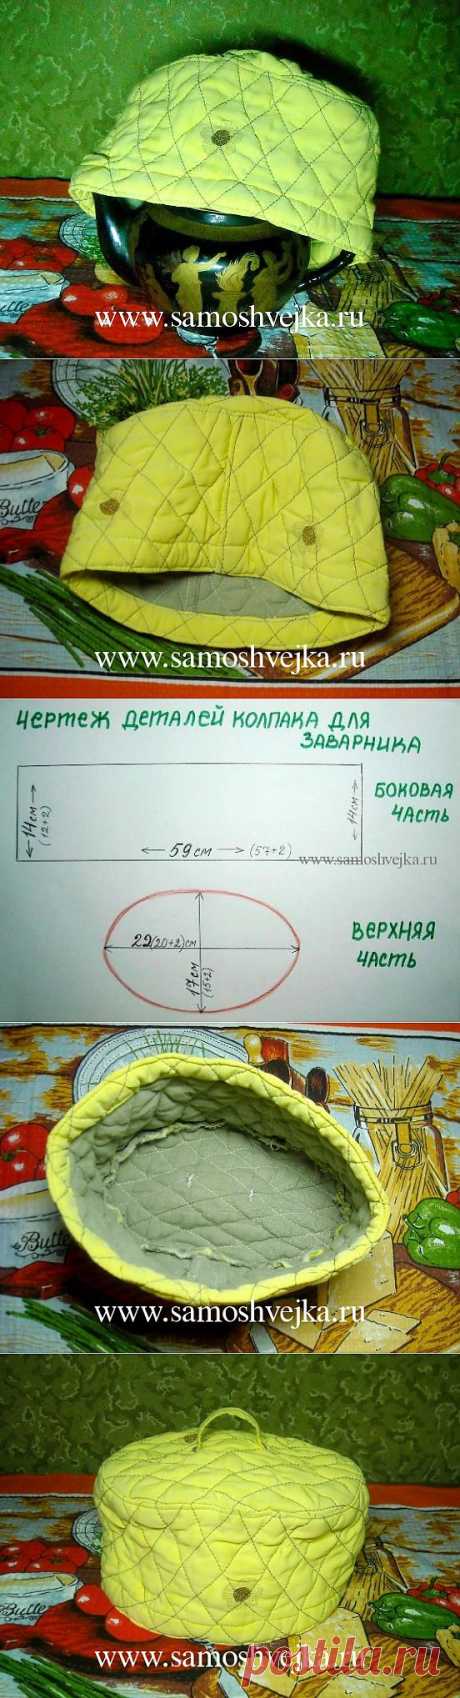 Butter
www.samoshvejka.ru
Butte
www.samoshvejka.ru
ЧЕРТЕЖ ДЕТАЛЕЙ КОЛПАКА ДЛЯ
ЗАВАРНИКА
14 см
(12+2)
14 см
БОКОВАЯ
ЧАСТЬ
59 см (57+2)
www.samoshvejka.ru
22(20+2)см
17 см
(15+2)
ВЕРХНЯЯ
ЧАСТЬ
Butte
www.samoshvejka.ru
Butte
www.samoshvejka.ru
postila.ru